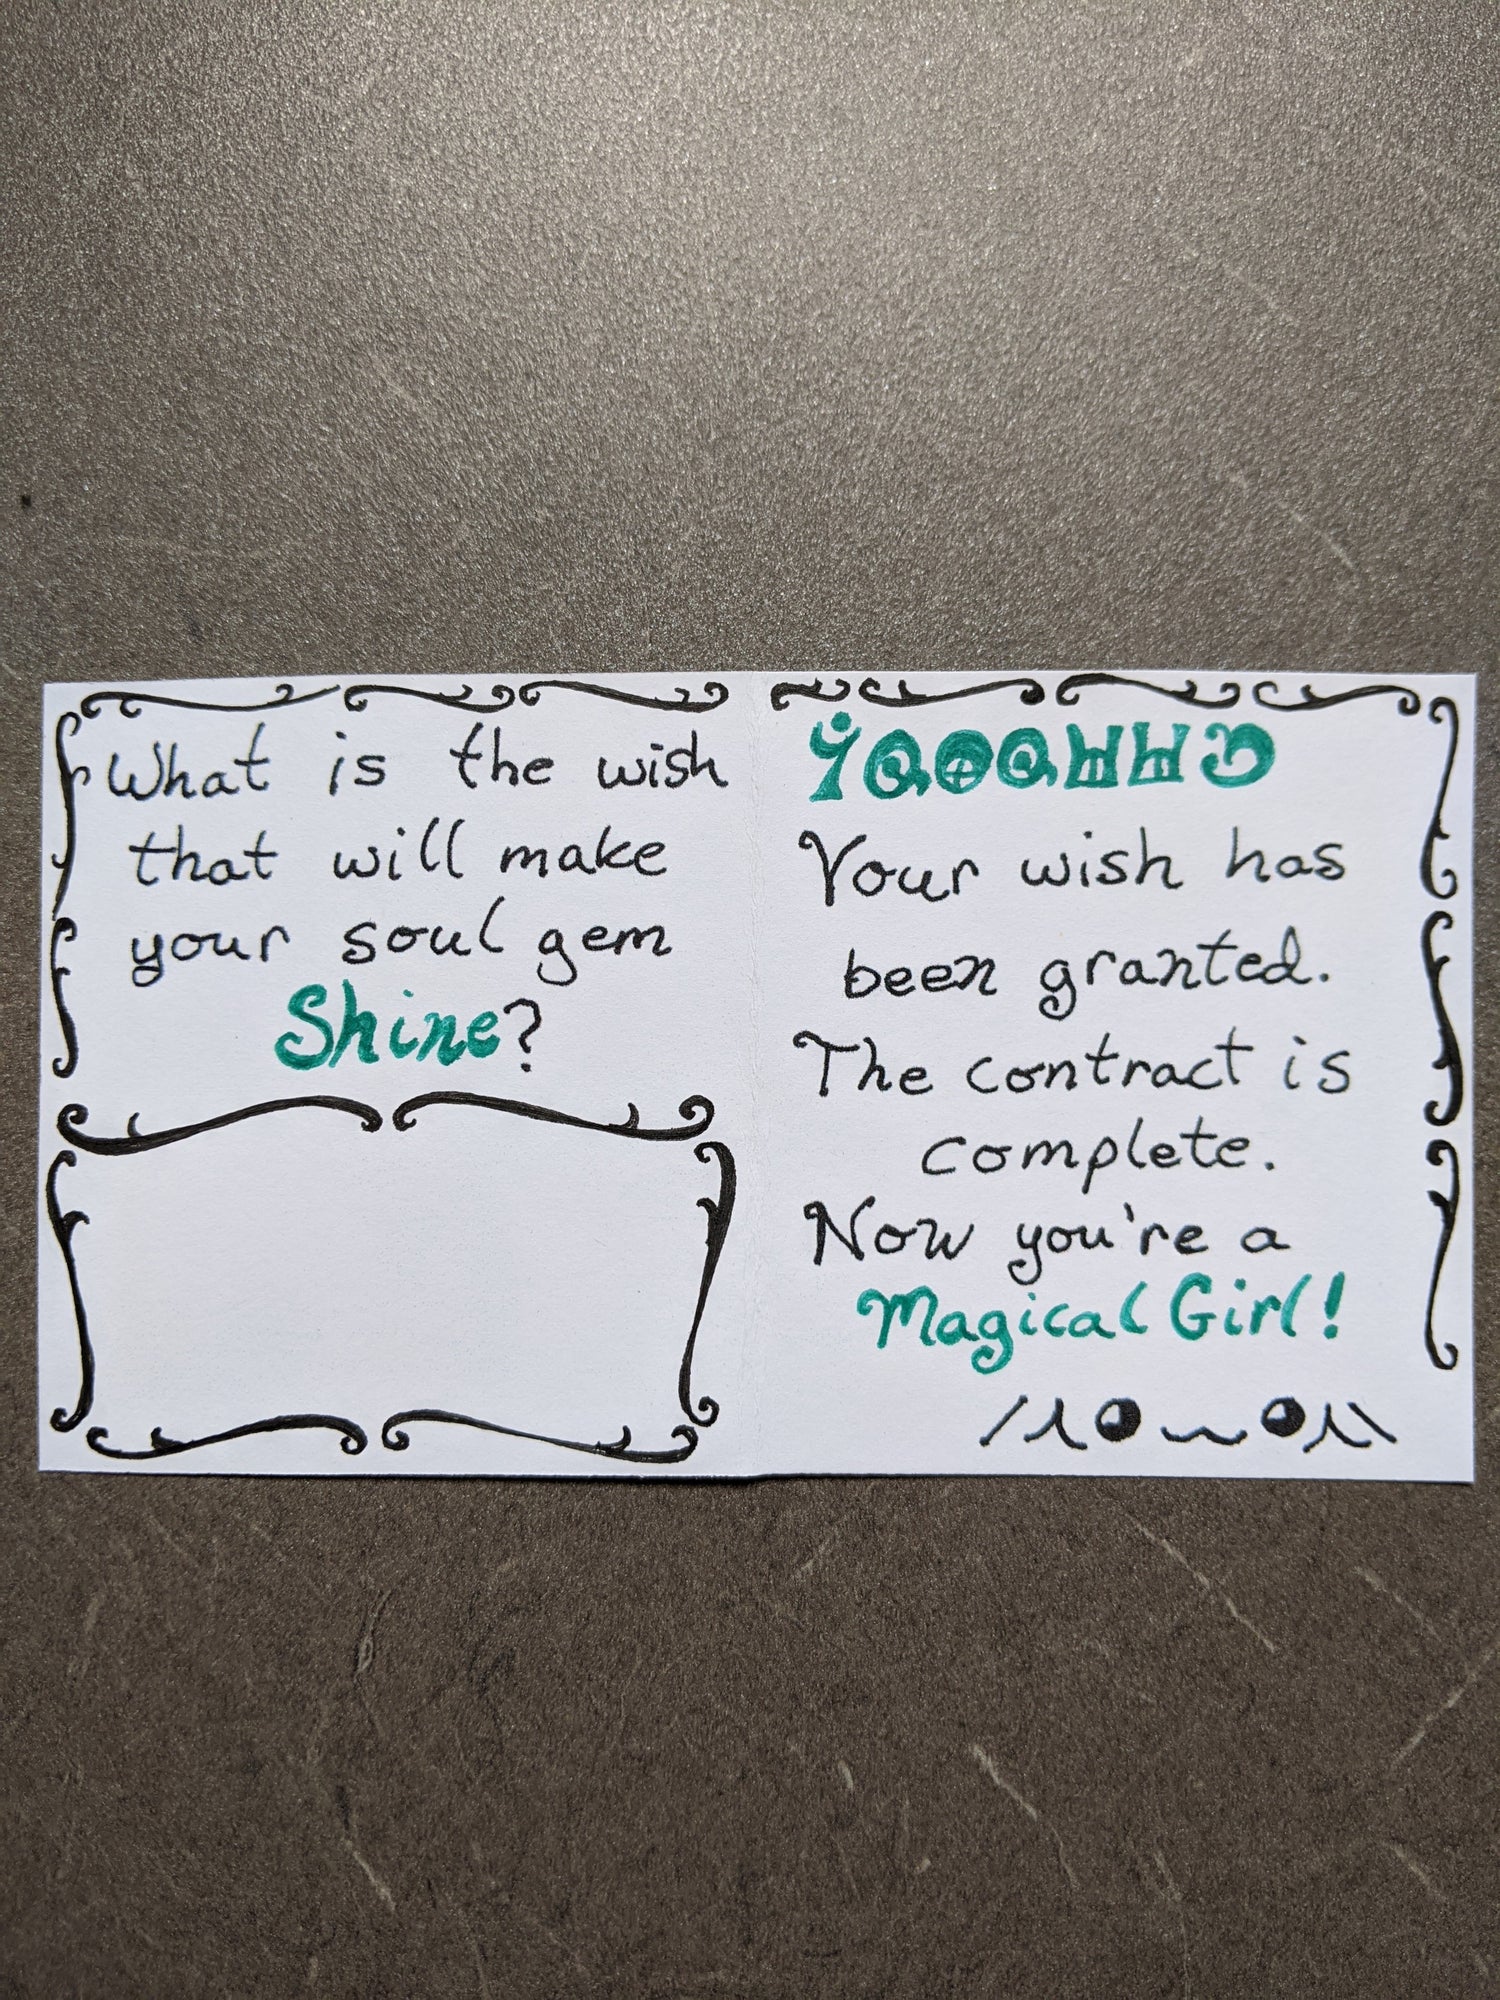 What is the wish
that will make
your soul gem
Shine?
Your wish has
been granted.
The contract is
complete.
Now you're a
Magical Girl!